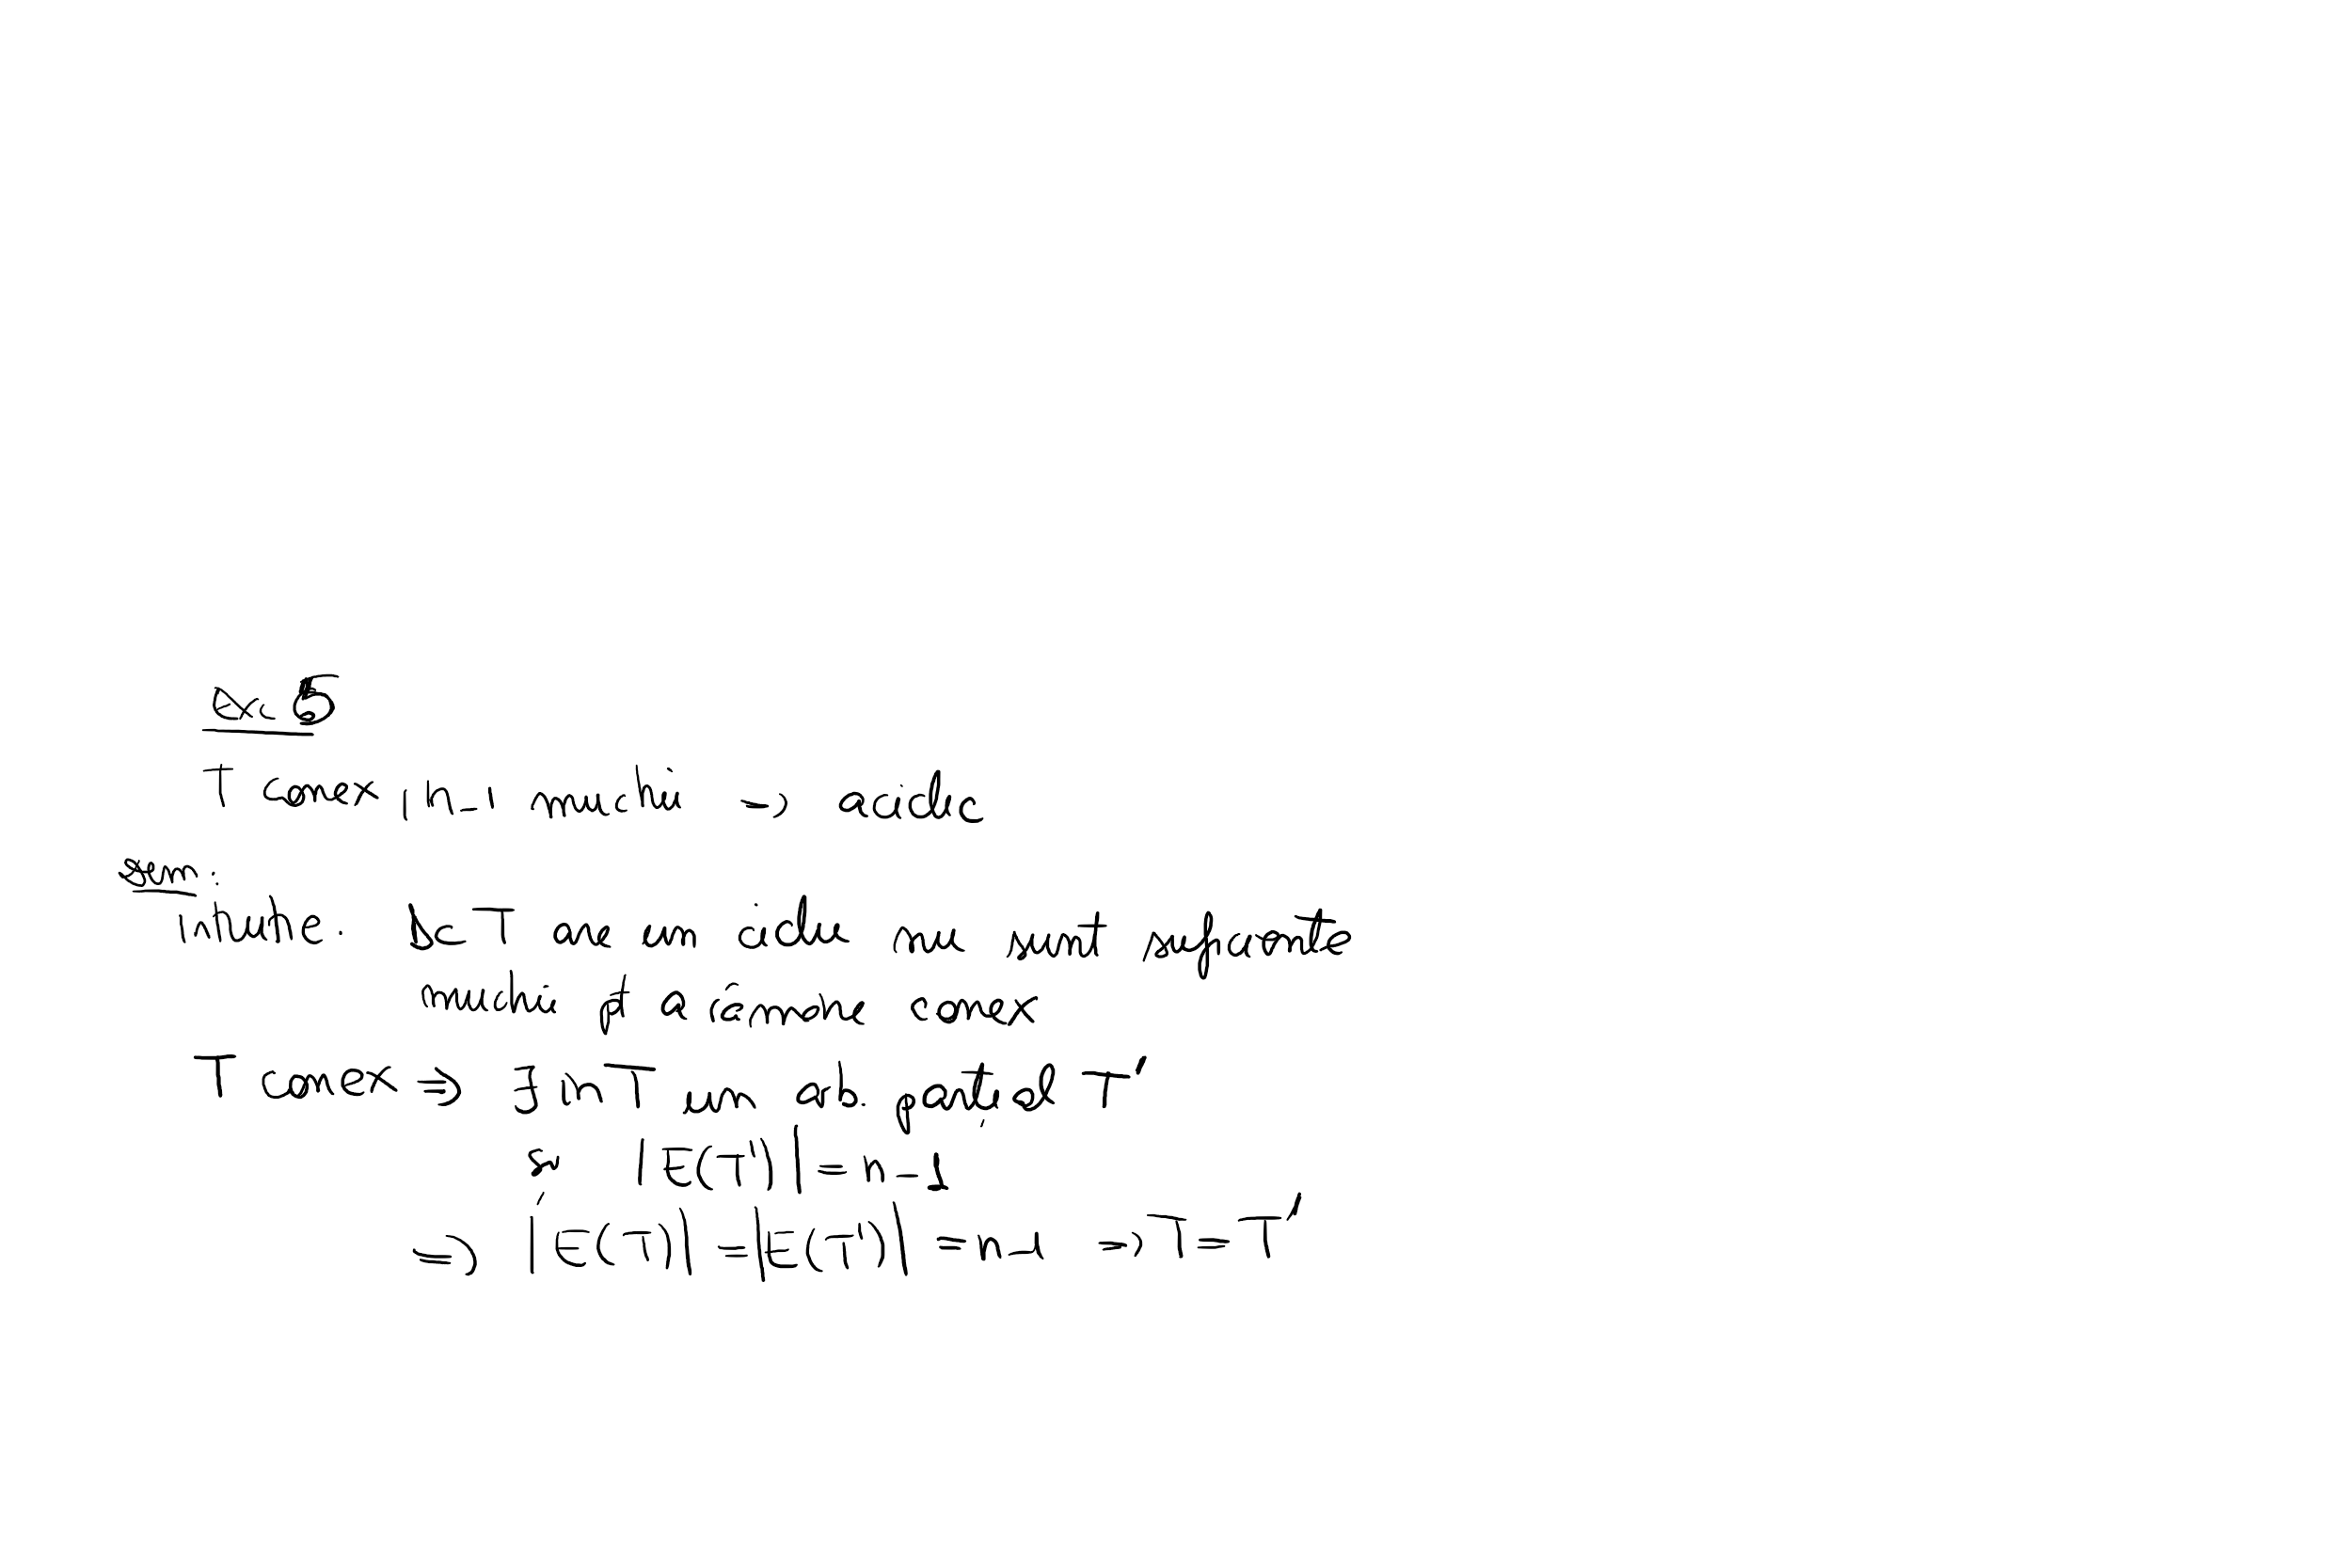 Ex. 5
T conex, n-1 muchii → aciclic
Dem:
intuitie. Dc T are un ciclu nu sunt suficiente
muchii pt a rămâne conex
T conex ⇒ ∃ în T un arb. parțial T'
și |E(T')| = n-1
⇒ |E(T)| = |E(T')| = n-1 ⇒ T = T'